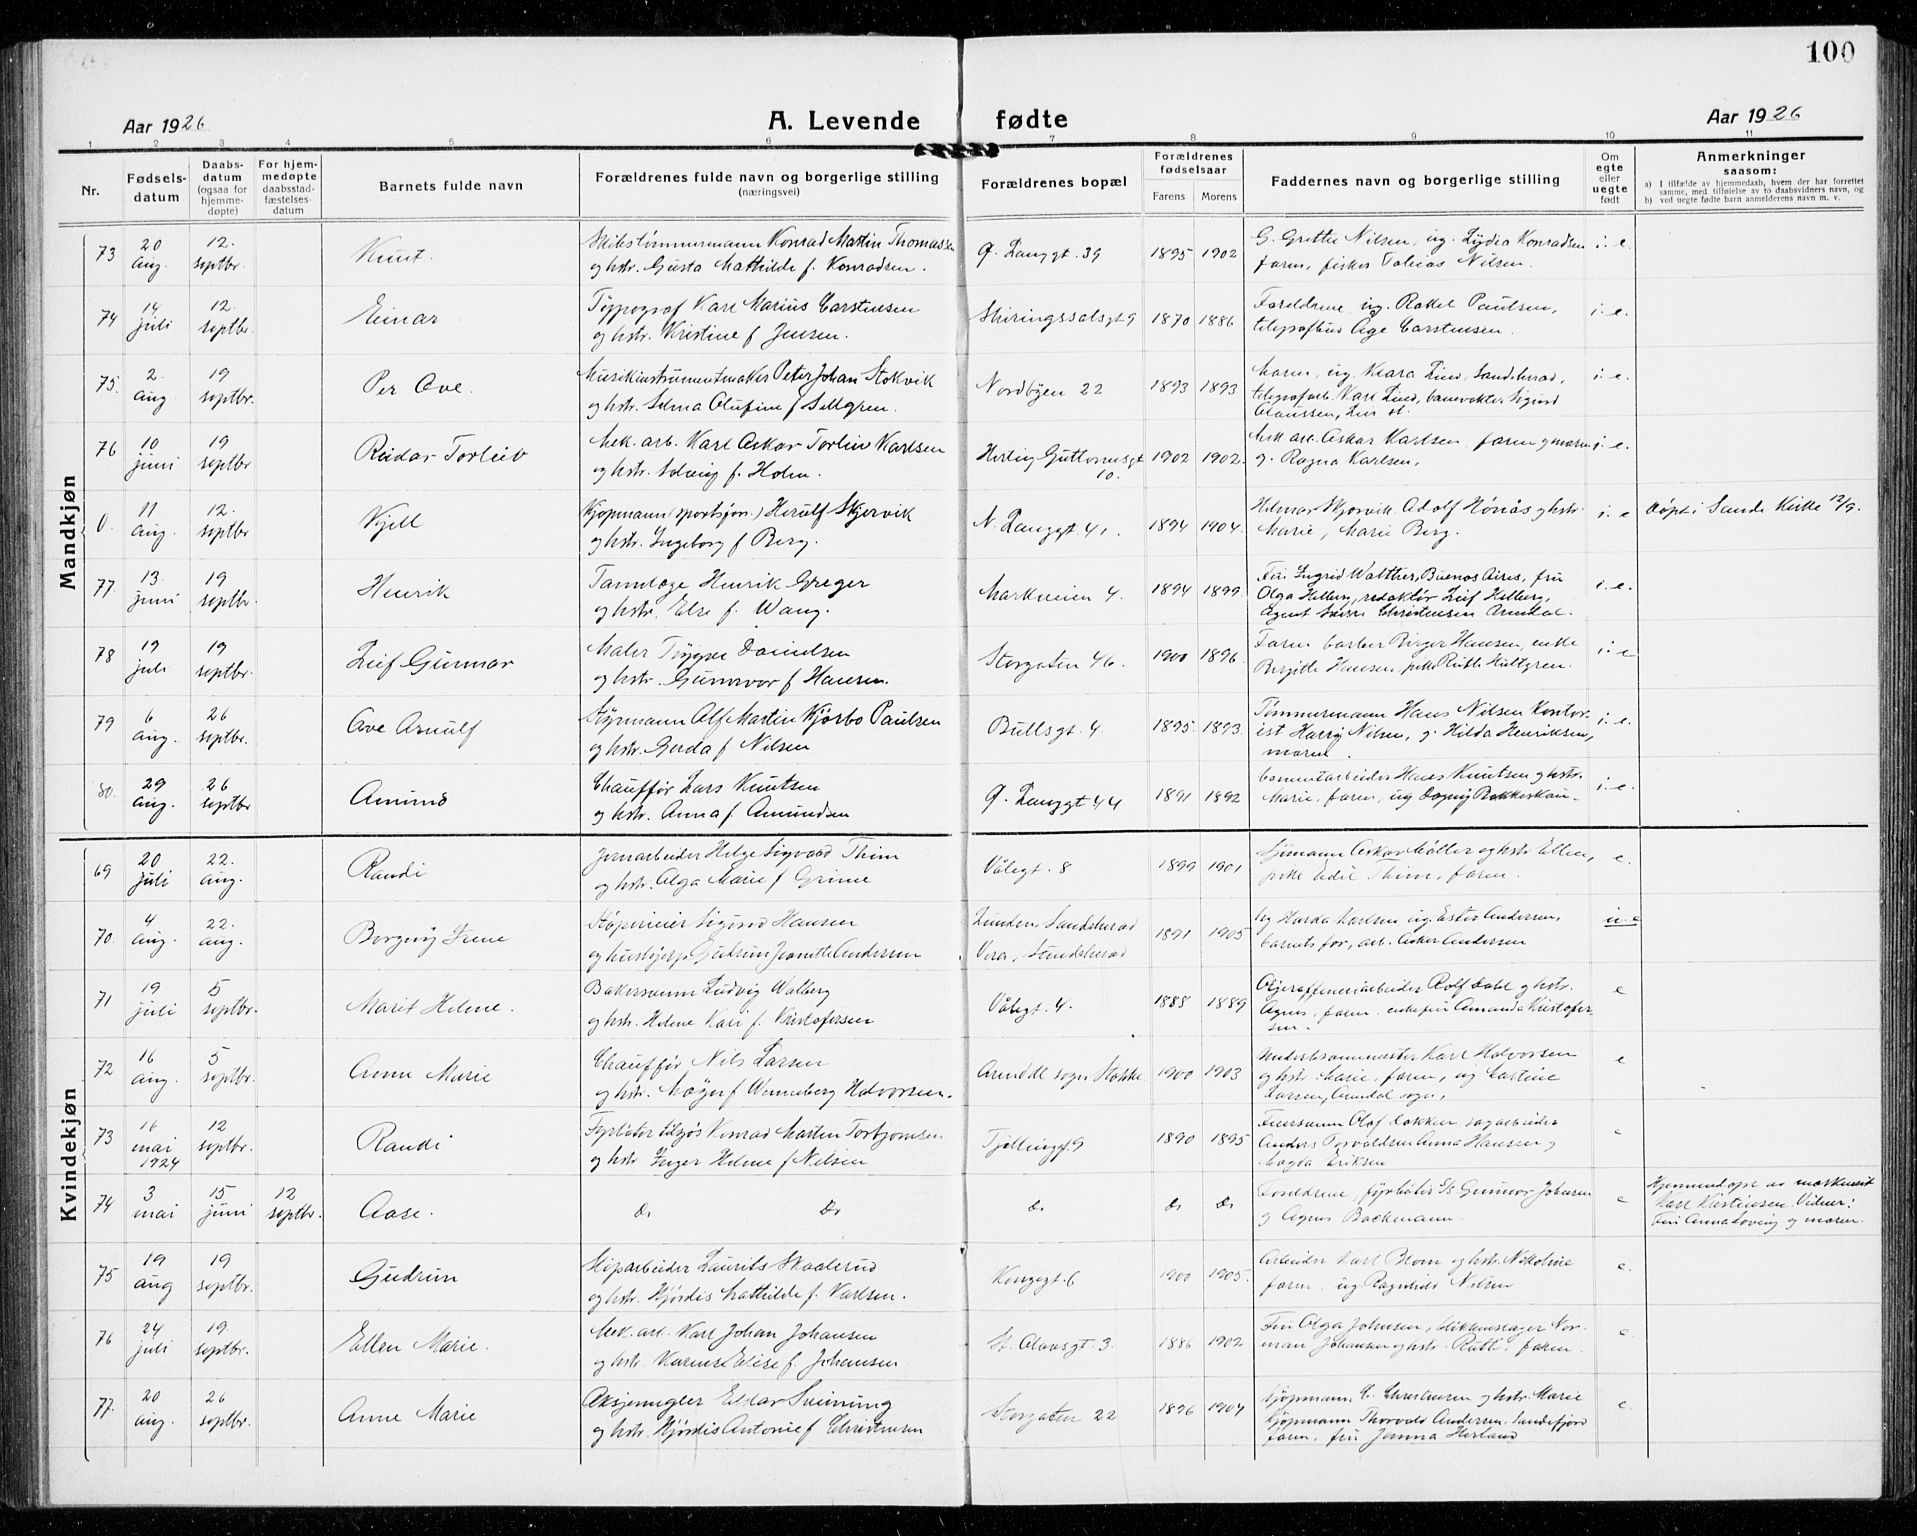 100
Aar 1926
A. Levende fødte
Aar 1926
1 2 3 4 5 6 7 8 9 10 11
Nr.
Fødsels-
datum
Daabs-
datum
(ogsaa for
hjemme-
døpte)
For hjem-
medøpte
daabsstad-
fæstelses-
datum
Barnets fulde navn
Forældrenes fulde navn og borgerlige stilling
(næringsvei)
Forældrenes bopæl
Forældrenes
fødselsaar
Farens Morens
Faddernes navn og borgerlige stilling
Om
egte
eller
uegte
født
Anmerkninger
saasom:
a) I tilfælde av hjemmedaab, hvem der har forrettet
samme, med tilføielse av to daabsvidners navn, og
b) ved uegte fødte barn anmelderens navn m. v.
Mandkjøn
73 20 12. Skibstømmermann Konrad Martin Thomassen G. Grethe Nilsen, ug. Lydia Konradsen
aug. septbr. Knut. og hstr. Gusta Mathilde f. Konradsen. Ø. Langgt. 39 1895 1902 faren, fisker Tobias Nilsen. i. e.
74 14 12. Typograf Karl Marius Carstensen Foreldrene, ug. Rakel Paulsen,
juli septbr. Einar og hstr. Kristine f Jensen. Skiringssalsgt 9 1870 1886 telegrafbud Åge Carstensen. i. e.
75 2 19 Musikinstrumentmaker Peter Johan Stokvik Maren, ug. Klara Lind, Sandeherad,
aug septbr. Per Ove. og hstr. Selma Olufine f Sellgren. Nordbyen 22 1893 1893 telegrafarb. Karl Lind, banevokter Sigurd i. e.
Claussen, Lier st.
76 10 19 Mek. arb. Karl Oskar Torleiv Karlsen Mek arb. Oskar Karlsen faren g moren
juni septbr. Reidar Torleiv og hstr. Solveig f. Holm. Hertug Guttormsgt 10. 1902 1902. g. Ragna Karlsen, i. e.
0. 11 12. Kjøpmann (sportsforr.) Herulf Skjervik Hilmar Skjervik Adolf Hønås g hstr.
aug. septbr Kjell og hstr. Ingeborg f Berg. N. Langgt. 41 1894 1904. Marie, Marie Berg. i. e Døpt i Sande Kirke 12/9.
77. 13 19 Tannlæge Henrik Greger Fru Ingrid Walther, Buenos Aires, fru
juni septbr. Henrik og hstr. Else f. Wang. Markveien 4. 1894 1899 Olga Helberg, redaktør Leif Helberg, i. e.
Agent Christensen Arendal.
78 19 19 Maler Trygve Danielsen Faren barber Birger Hansen, enke
juli septbr. Leif Gunnar og hstr. Gunvor f Hansen. Storgaten 46. 1900 1896. Bergitte Hansen, pike Ruth Hultgren. i. e
79 6 26 Styrmann Alf Martin Kjørbo Paulsen Tømmermann Hans Nilsen Kontor-
aug. septbr. Ove Arnulf og hstr. Gerda f Nilsen Bullsgt. 4 1895. 1893. ist Harry Nilsen, g. Hilda Henriksen, i. e.
moren.
80. 29 26 Chauffør Lars Knutsen Cementarbeider Hans Knutsen g hstr.
aug. septbr Amund og hstr. Anna f Amundsen Ø. Langgt 44 1891 1892 Marie, faren, ug Dagny i. e.
Kvindekjøn
69 20 22. Jernarbeider Helge Sigvard Thim Sjømann Oskar Møller og hstr Ellen,
juli aug. Randi og hstr. Olga Marie f Grime Vålegt. 8 1899 1901 pike Thim, faren. e.
70. 4 22. Støperieier Sigurd Hansen Lunden Sandeherad ug Harda Karlsen ug. Ester Andersen,
aug. aug. Borgny Irene og husbjerp Gudrun Jeanette Andersen Vera, Sandeherad 1891 1905 barnets far, arb. Oskar Andersen u. e
71 19 5 Bakersvenn Ludvig Walberg Rolf Dahl g hstr.
juli septbr. Marit Helene. og hstr. Helene Kari f. Kristofersen Vålegt. 4. 1888 1889 Agnes, faren. enkefru Amanda Kristofer- e
sen.
72 16 5 Chauffør Nils Larsen Karl Halvorsen
aug. septbr. Anne Marie og hstr. f Wenneberg Halvorsen. Arendal sogn Stokke 1900 1903 og hstr Marie, faren, ug e
Larsen, Arendal sogn.
73 16 12 Fyrbøter Konrad Martin Torbjørnsen Olaf Bakken sagarbeider
mai septbr. Randi og hstr Inger Helene f Nilsen Tjøllinggt 9 1890 1895 Anders Anna Hansen g e
1924 Magda Eriksen
74 3 15 12 Foreldrene, fyrbøter Gunnar Johnsen Hjemmedøpt av
mai juni septbr. Aase. Do Do Do Do Do g Agnes Backmann. e Karl Kristensen Vidner:
Fru Anna g moren.
75 19 19 Støparbeider Laurits Skaalerud Arbeider Karl Blom og hstr. Nikoline
aug septbr. Gudrun og hstr. Hjørdis Mathilde f. Karlsen. Kongegt. 6 1900 1905. faren. ug. Ragnhild Nilsen e.
76 24 19. Mek. arb. Karl Johan Johansen Fru Olga Johnsen, blikkenslager Nor-
juli septbr. Ellen Marie. og hstr. Elise f. Johansen St. Olavsgt. 3. 1886 1902 man Johansen og hstr. Ruth, faren. e.
77. 20 26 Aksjemegler Svinning Kjøpmann Christensen og hstr. Marie
aug. septbr. Anne Marie og hstr. Hjørdis Antonie f Christensen Storgaten 22 1896 1904 Kjøpmann Thorvald Andersen, Sandefjord e.
faren, fru Jenna Herland